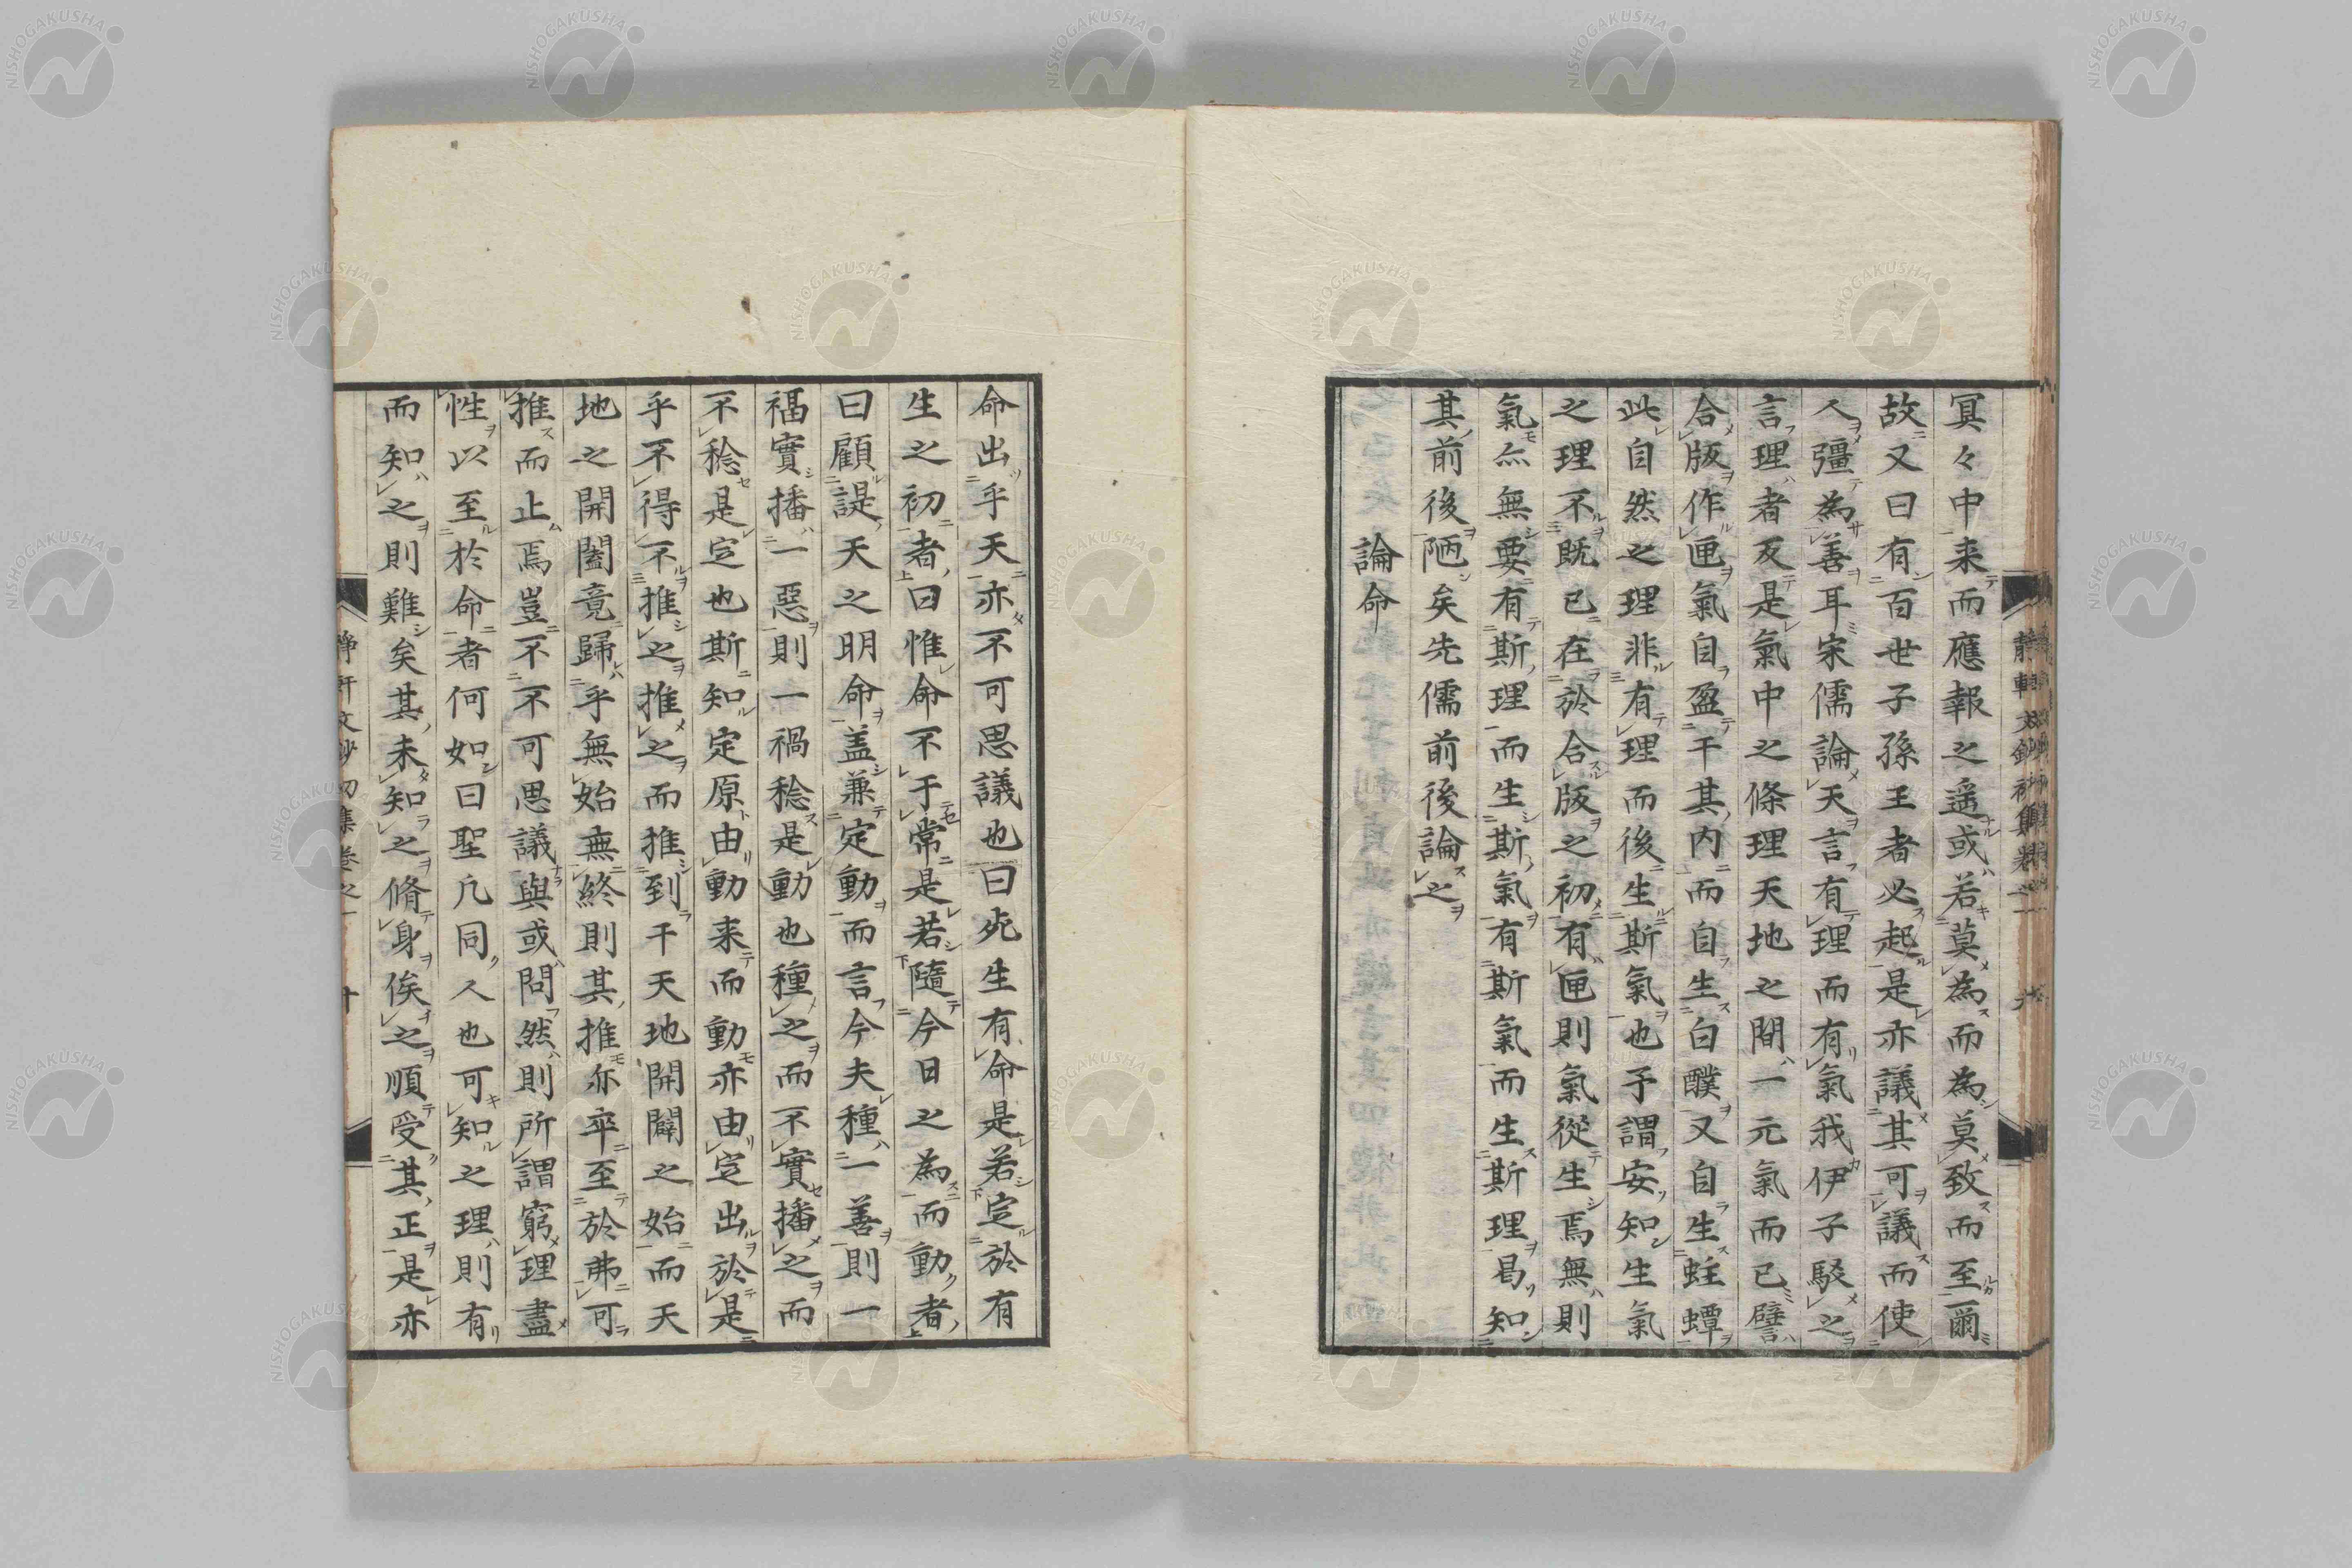 冥々中来而應報之遥或若莫為而為莫致而至爾
故又曰有百世子孫王者必起是亦議其可議而使
人彊為善耳宋儒論天言有理而有氣我伊子駁之
言理者反是氣中之條理天地之間一元氣而已譬
合版作匣氣自盈于其内而自生白醭又自生蛀蟫
此自然之理非有理而後生斯氣也予謂安知生氣
之理不既已在於合版之初有匣則氣從生焉無則
氣亦無要有斯理而生斯氣有斯氣而生斯理曷知
其前後陋矣先儒前後論之
論命
命出乎天亦不可思議也曰死生有命是若定於有
生之初者曰惟命不于常是若隨今日之為而動者
曰顧諟天之明命盖兼定動而言今夫種一善則一
福實播一惡則一禍稔是動也種之而不實播之而
不稔是定也斯知定原由動来而動亦由定出於是
乎不得不推之推之而推到于天地開闢之始而天
地之開闔竟歸乎無始無終則其推亦卒至於弗可
推而止焉豈不不可思議與或問然則所謂窮理盡
性以至於命者何如曰聖凡同人也可知之理則有
而知之則難矣其未知之脩身俟之順受其正是亦
静軒文鈔初集卷之一
十
NISHOGAKUSHA